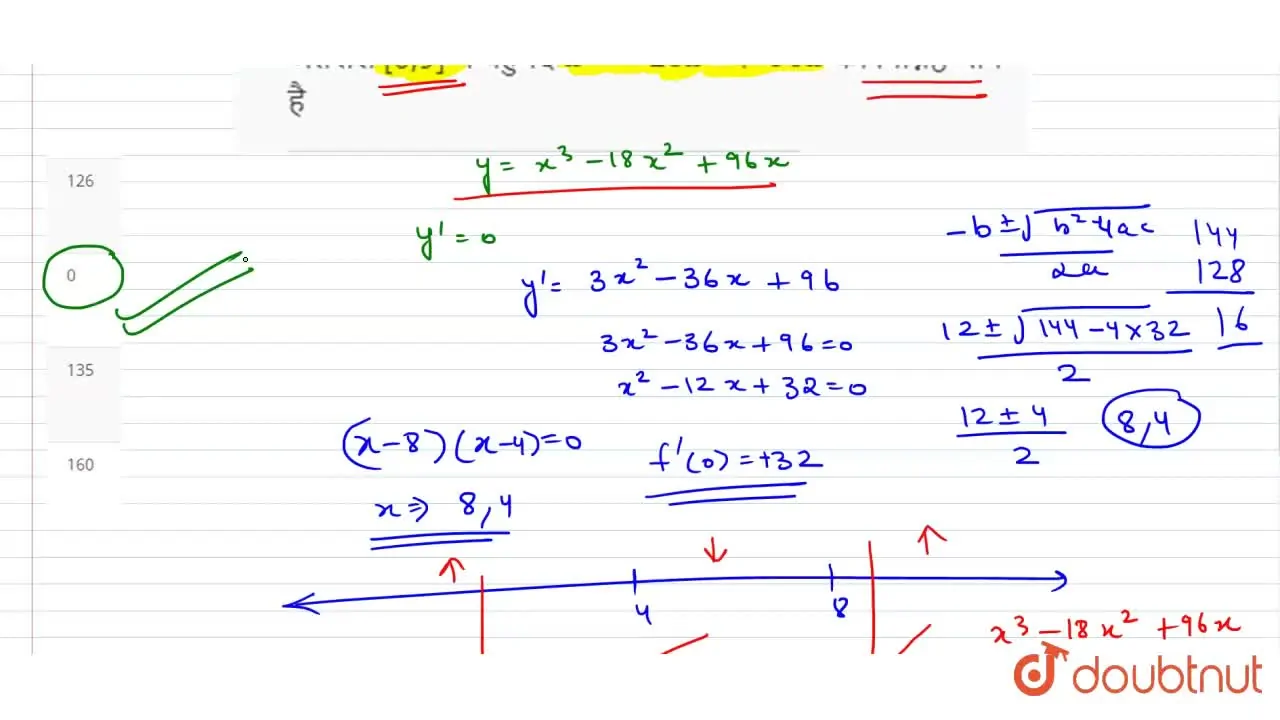 है
y = x³ – 18x² + 96x
126
y' = 0
0
y' = 3x² – 36x + 96
3x² – 36x + 96 = 0
x² – 12x + 32 = 0
135
(x–8)(x–4) = 0
160
x ⇒ 8, 4
f'(0) = +32
-b ± √b²-4ac
2a
144
128
16
12 ± √144 – 4×32
2
12 ± 4
2
8, 4
4
8
x³ – 18x² + 96x
doubtnut